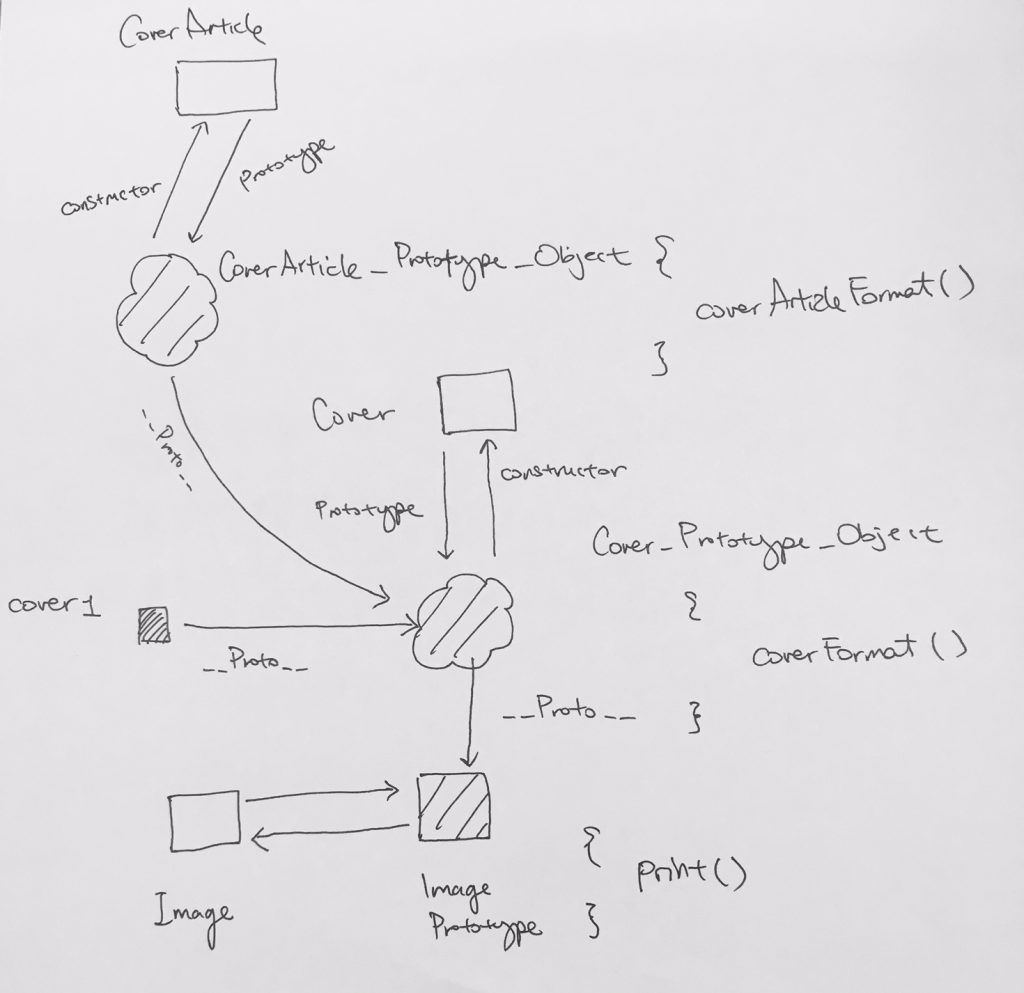 CoverArticle
constructor
Prototype
CoverArticle_Prototype_Object {
coverArticleFormat()
}
Cover
constructor
Prototype
__Proto__
Cover_Prototype_Object
{
cover1
coverFormat()
__Proto__
__Proto__
}
{
Print()
Image
Prototype
Image
}